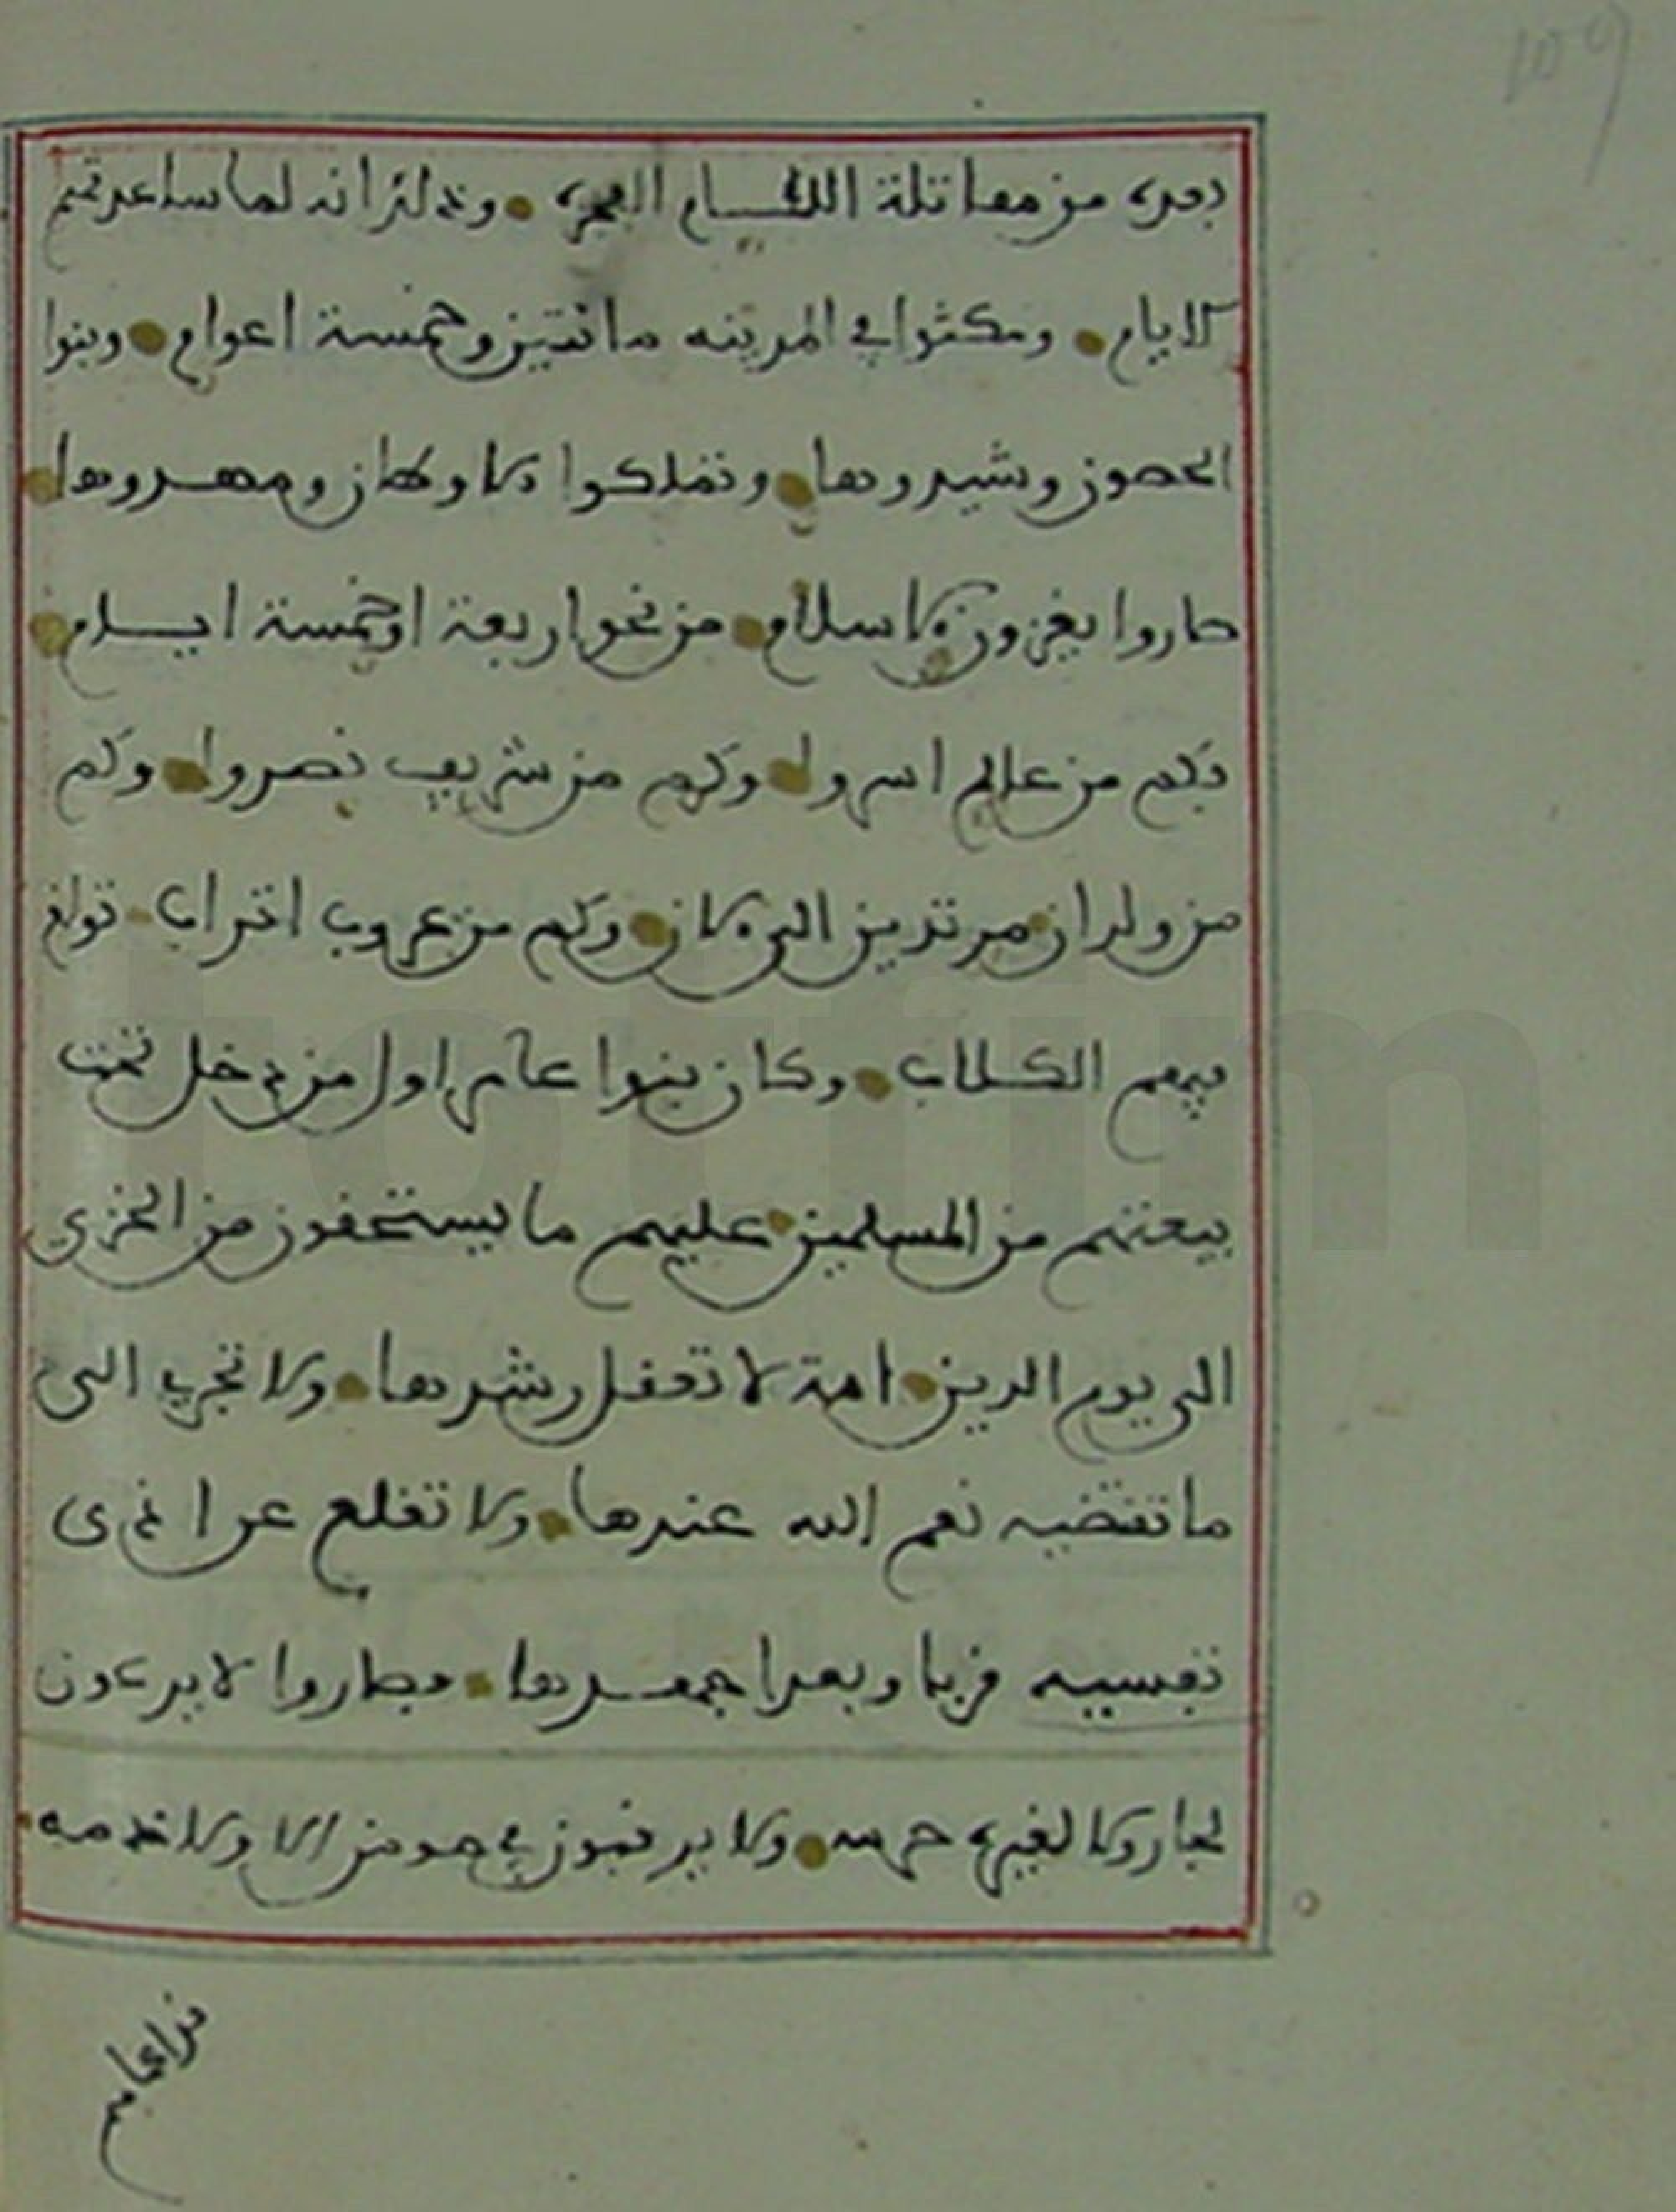 بعده من مقاتلة اللئام الفجره وذلك انه لما ساعدتهم
الايام ومكثوا في المدينه مائتين وخمسة اعوام وبنوا
الحصون وشيدوها وتملكوا الاوطان ومهدوها
صاروا يغزون الاسلام من نحو اربعة او خمسة ايام
فكم من عالم اسروا وكم من شريف نصروا وكم
من ولدان مرتدين الى الان وكم من عرب اتراب تولغ
فيهم الكلاب وكان بنوا عامر اول من دخل تحت
بيعتهم من المسلمين عليهم ما يستحقون من الخزي
الى يوم الدين امة لا تعقل رشدها ولا تجري الى
ما تقتضيه نعم الله عندها ولا تقلع عن اذى
تفسيه قربا وبعدا جهدها فصاروا لا يرعون
لجار ولا لغيره حرمه ولا يرقبون في مومن الا ولا ذمه